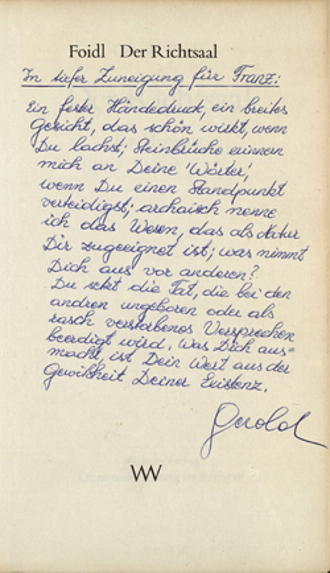 Foidl Der Richtsaal
In tiefer Zuneigung für Franz:
Ein fester Händedruck, ein breites
Gesicht, das schön wirkt, wenn
Du lachst; Steinbrüche erinnern
mich an Deine 'Wörter',
wenn Du einen Standpunkt
verteidigst; archaisch nenne
ich das Wesen, das als Natur
Dir zugeeignet ist; was nimmt
Dich aus vor anderen?
Du setzt die Tat, die bei den
andren ungeboren oder als
rasch verstorbenes Versprechen
beerdigt wird. Was Dich aus=
macht, ist Dein Wert aus der
Gewißheit Deiner Existenz.
Gerold
W